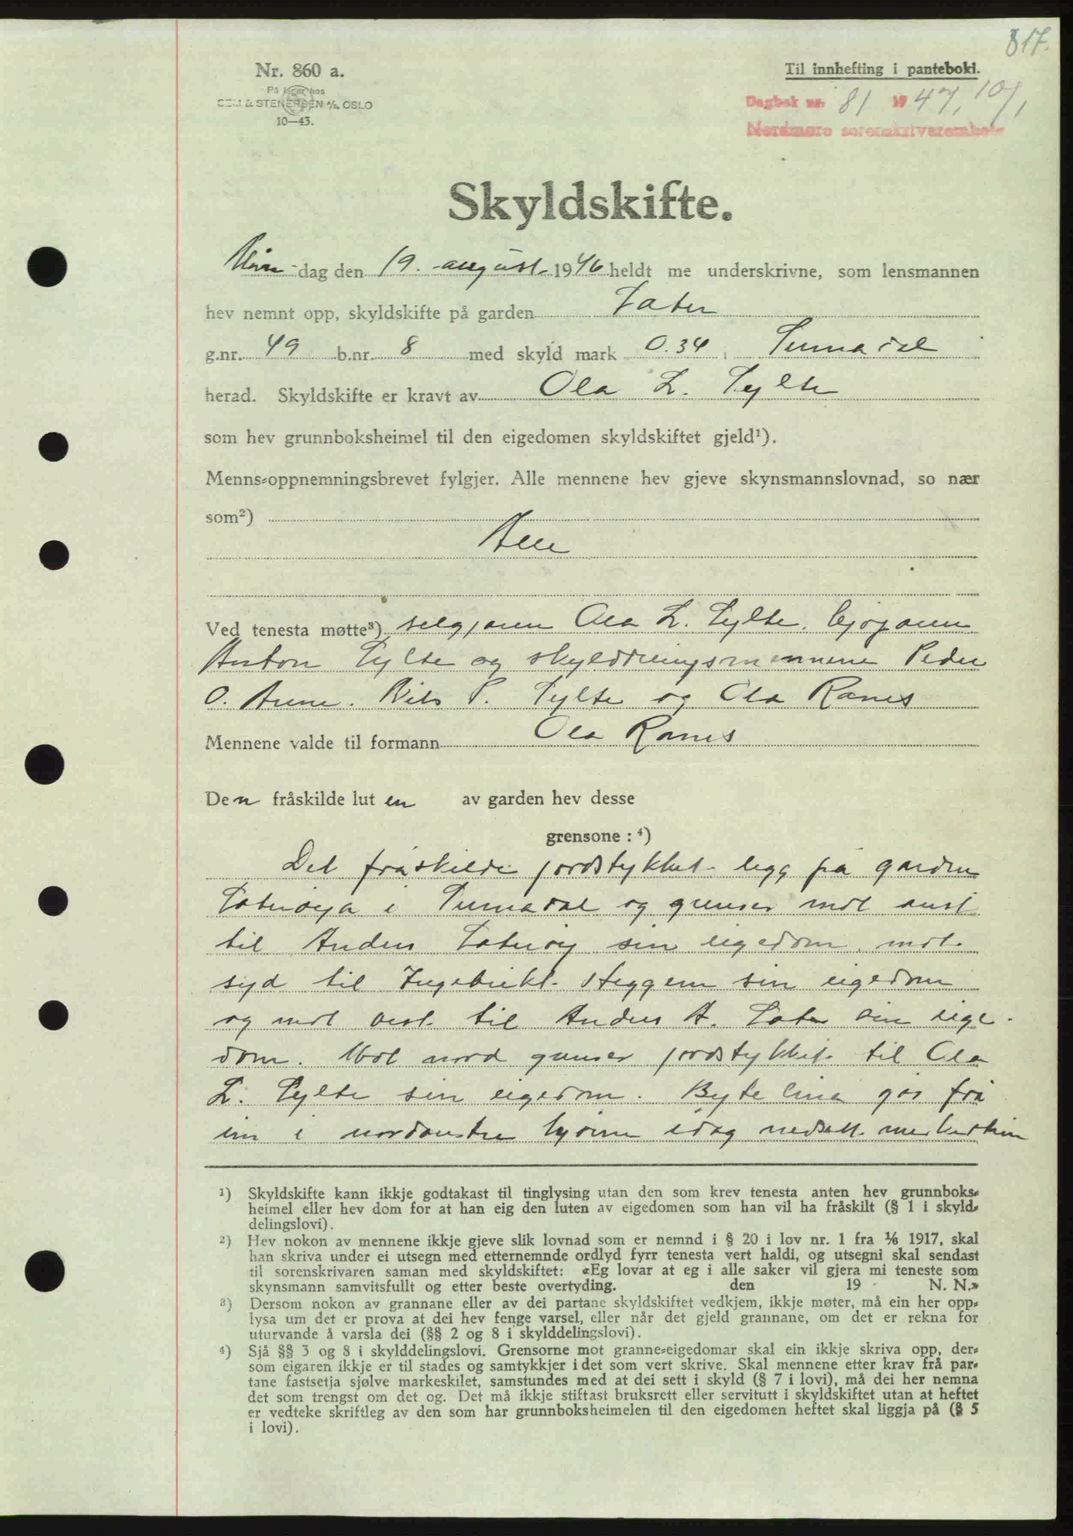 817.
Nr. 860 a.
Til innhefting i panteboki.
På lager hos
SEM & STENERSEN A/S, OSLO
10—43.
Dagbok nr. 81 1947, 10/1
Nordmøre sorenskriverembete
Skyldskifte.
dag den 19. august 1946 heldt me underskrivne, som lensmannen
hev nemnt opp, skyldskifte på garden Sæter
g.nr. 49 b.nr. 8 med skyld mark 0.34 i Surnadal
herad. Skyldskifte er kravt av Ola L. Sylte
som hev grunnboksheimel til den eigedomen skyldskiftet gjeld¹).
Menns-oppnemningsbrevet fylgjer. Alle mennene hev gjeve skynsmannslovnad, so nær
som²)
Alle
Ved tenesta møtte³) seljaren Ola L. Sylte. kjøparen
Anton Sylte og skylddelingsmennene Peder
O. Aune. Nils P. Sylte og Ola Ranes
Mennene valde til formann Ola Ranes
Den fråskilde lut en av garden hev desse
grensone : ⁴)
Det fråskilde jordstykket legg på garden
Sæterøya i Surnadal og grenser mot aust
til Anders Sæterøy sin eigedom, mot
syd til Ingebrikt Steggem sin eigedom
og mot vest til Anders A. Sæter sin eige-
dom. Mot nord grenser jordstykket til Ola
L. Sylte sin eigedom. Bytelina går frå
ein i nordaustre hjørne idag nedsatt merkestein
¹) Skyldskifte kann ikkje godtakast til tinglysing utan den som krev tenesta anten hev grunnboks-
heimel eller hev dom for at han eig den luten av eigedomen som han vil ha fråskilt (§ 1 i skyld-
delingslovi).
²) Hev nokon av mennene ikkje gjeve slik lovnad som er nemnd i § 20 i lov nr. 1 fra 1/6 1917, skal
han skriva under ei utsegn med etternemnde ordlyd fyrr tenesta vert haldi, og utsegni skal sendast
til sorenskrivaren saman med skyldskiftet: «Eg lovar at eg i alle saker vil gjera mi teneste som
skynsmann samvitsfullt og etter beste overtyding. den 19 N. N.»
³) Dersom nokon av grannane eller av dei partane skyldskiftet vedkjem, ikkje møter, må ein her opp-
lysa um det er prova at dei hev fenge varsel, eller når det gjeld grannane, om det er rekna for
uturvande å varsla dei (§§ 2 og 8 i skylddelingslovi).
⁴) Sjå §§ 3 og 8 i skylddelingslovi. Grensorne mot granne-eigedomar skal ein ikkje skriva opp, der-
som eigaren ikkje er til stades og samtykkjer i det som vert skrive. Skal mennene etter krav frå par-
tane fastsetja sjølve markeskilet, samstundes med at dei sett i skyld (§ 7 i lovi), må dei her nemna
det som trengst om det og. Det må ikkje stiftast bruksrett eller servitutt i skyldskiftet utan at heftet
er vedteke skriftleg av den som har grunnboksheimelen til den eigedomen heftet skal liggja på (§ 5
i lovi).